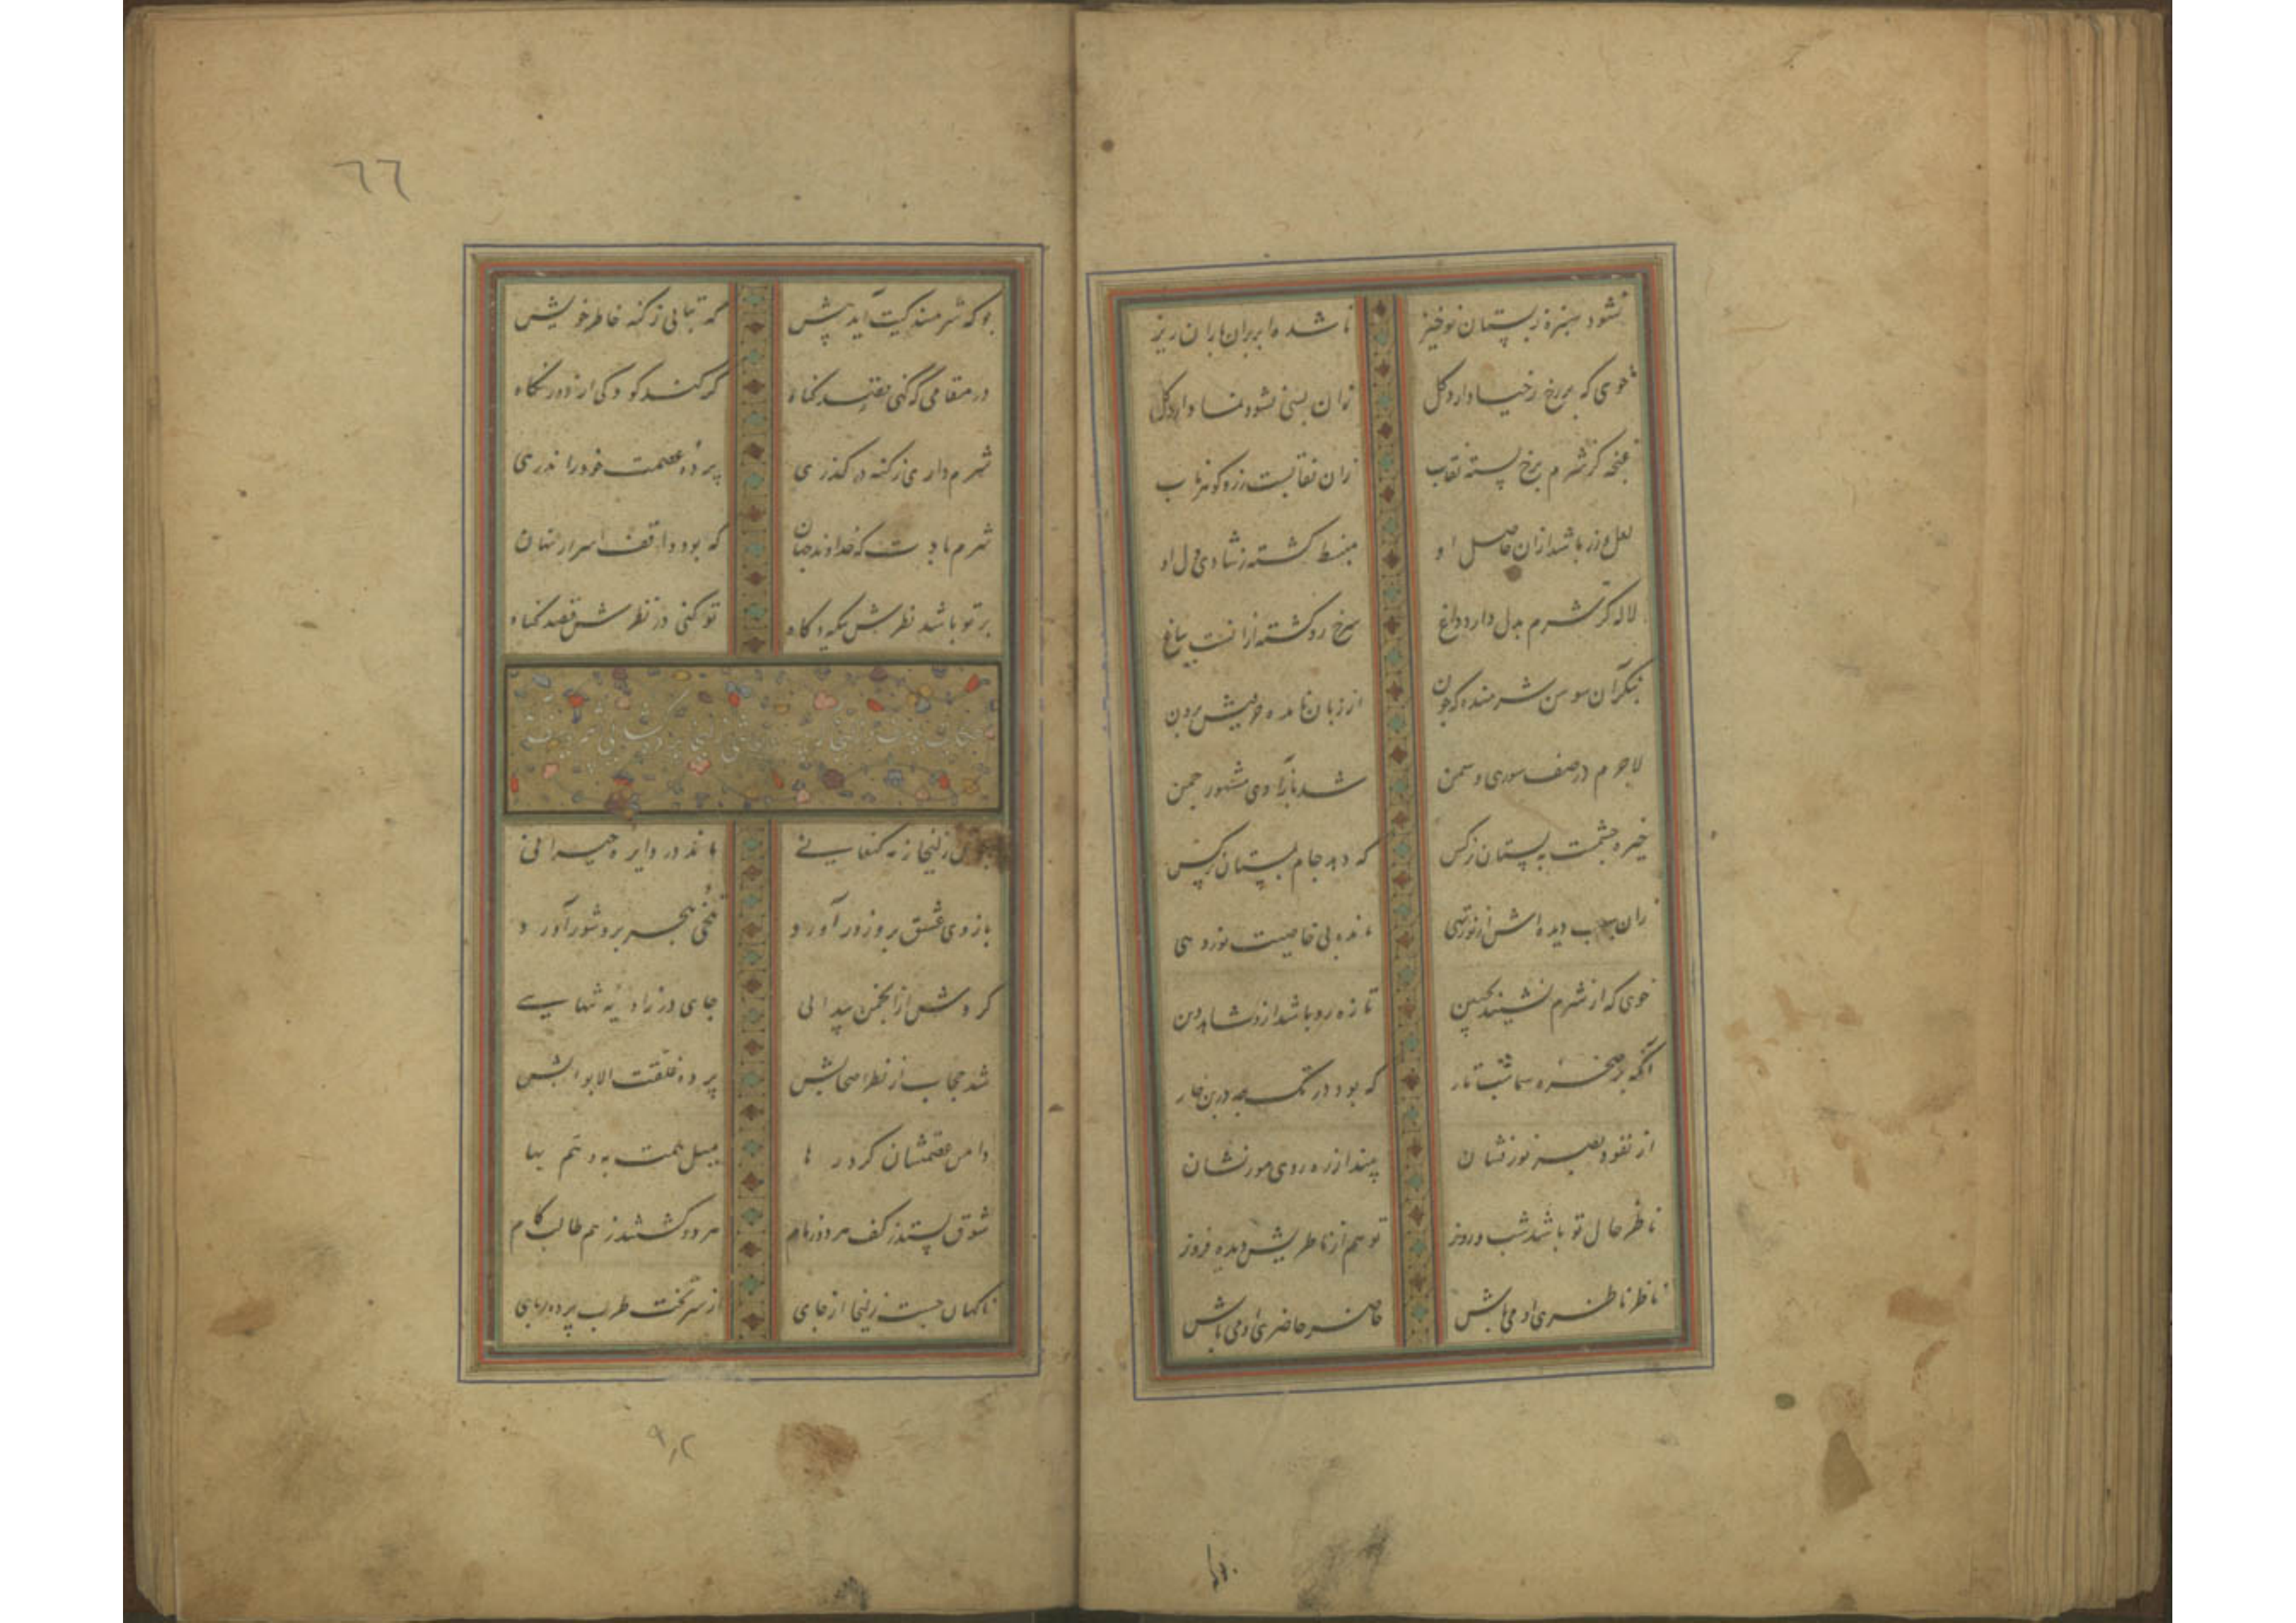 نشود سبزه ز بستان نوخیز
تا شده ابر بران باران ریز
خوی که بر رخ ز حیا دارد گل
زان بسی نشو و نما دارد گل
غنچه کز شرم برخ بسته نقاب
زان نقابست
لعل و زر باشد ازان حاصل او
منبسط گشته ز شادی دل او
لاله کز شرم بدل دارد داغ
سرخ رو گشته ازانست بباغ
بنگر آن سوسن شرمنده که چون
از زبان مانده خویش برون
لاجرم در صف سوری و سمن
شد بآزادی مشهور چمن
خیره چشمست به بستان نرگس
که دهد جام ببستان نرگس
زان سبب دیده اش از نور تهی
مانده بی خاصیت نور دهی
خوی که از شرم نشیند بجبین
تازه رو باشد ازو شاهد دین
آنکه بر صخره صما شب تار
که بود در تک چه در بن غار
از نفوذ بصر نورفشان
بیند از ره روی مور نشان
ناظر حال تو باشد شب و روز
تو هم از ناظریش دیده فروز
ناظر ناظری او می باش
حاضر حاضری او می باش
٦٦
بو که شرمندگیت آید پیش
که بتابی ز گنه خاطر خویش
در مقامی که کنی قصد گناه
گر کند کودکی از دور نگاه
شرم داری ز گنه در گذری
پرده عصمت خود را ندری
شرم بادت که خداوند جهان
که بود واقف اسرار نهان
بر تو باشد نظرش بیگه و گاه
تو کنی در نظرش قصد گناه
چون زلیخا ز مه کنعانی
ماند در دایره حیرانی
بازوی عشق برو زور آورد
تلخی هجر برو شور آورد
کردش از انجمن پیدائی
جای در زاویه تنهایی
شد حجاب از نظر اصحابش
پرده غلقت الابوابش
دامن عصمتشان کرد رها
میل همت به و هم بها
شوق بستد ز کف هر دو زمام
هر دو گشتند ز هم طالب کام
ناگهان جست زلیخا از جای
از سر تخت طرب پرده ربای